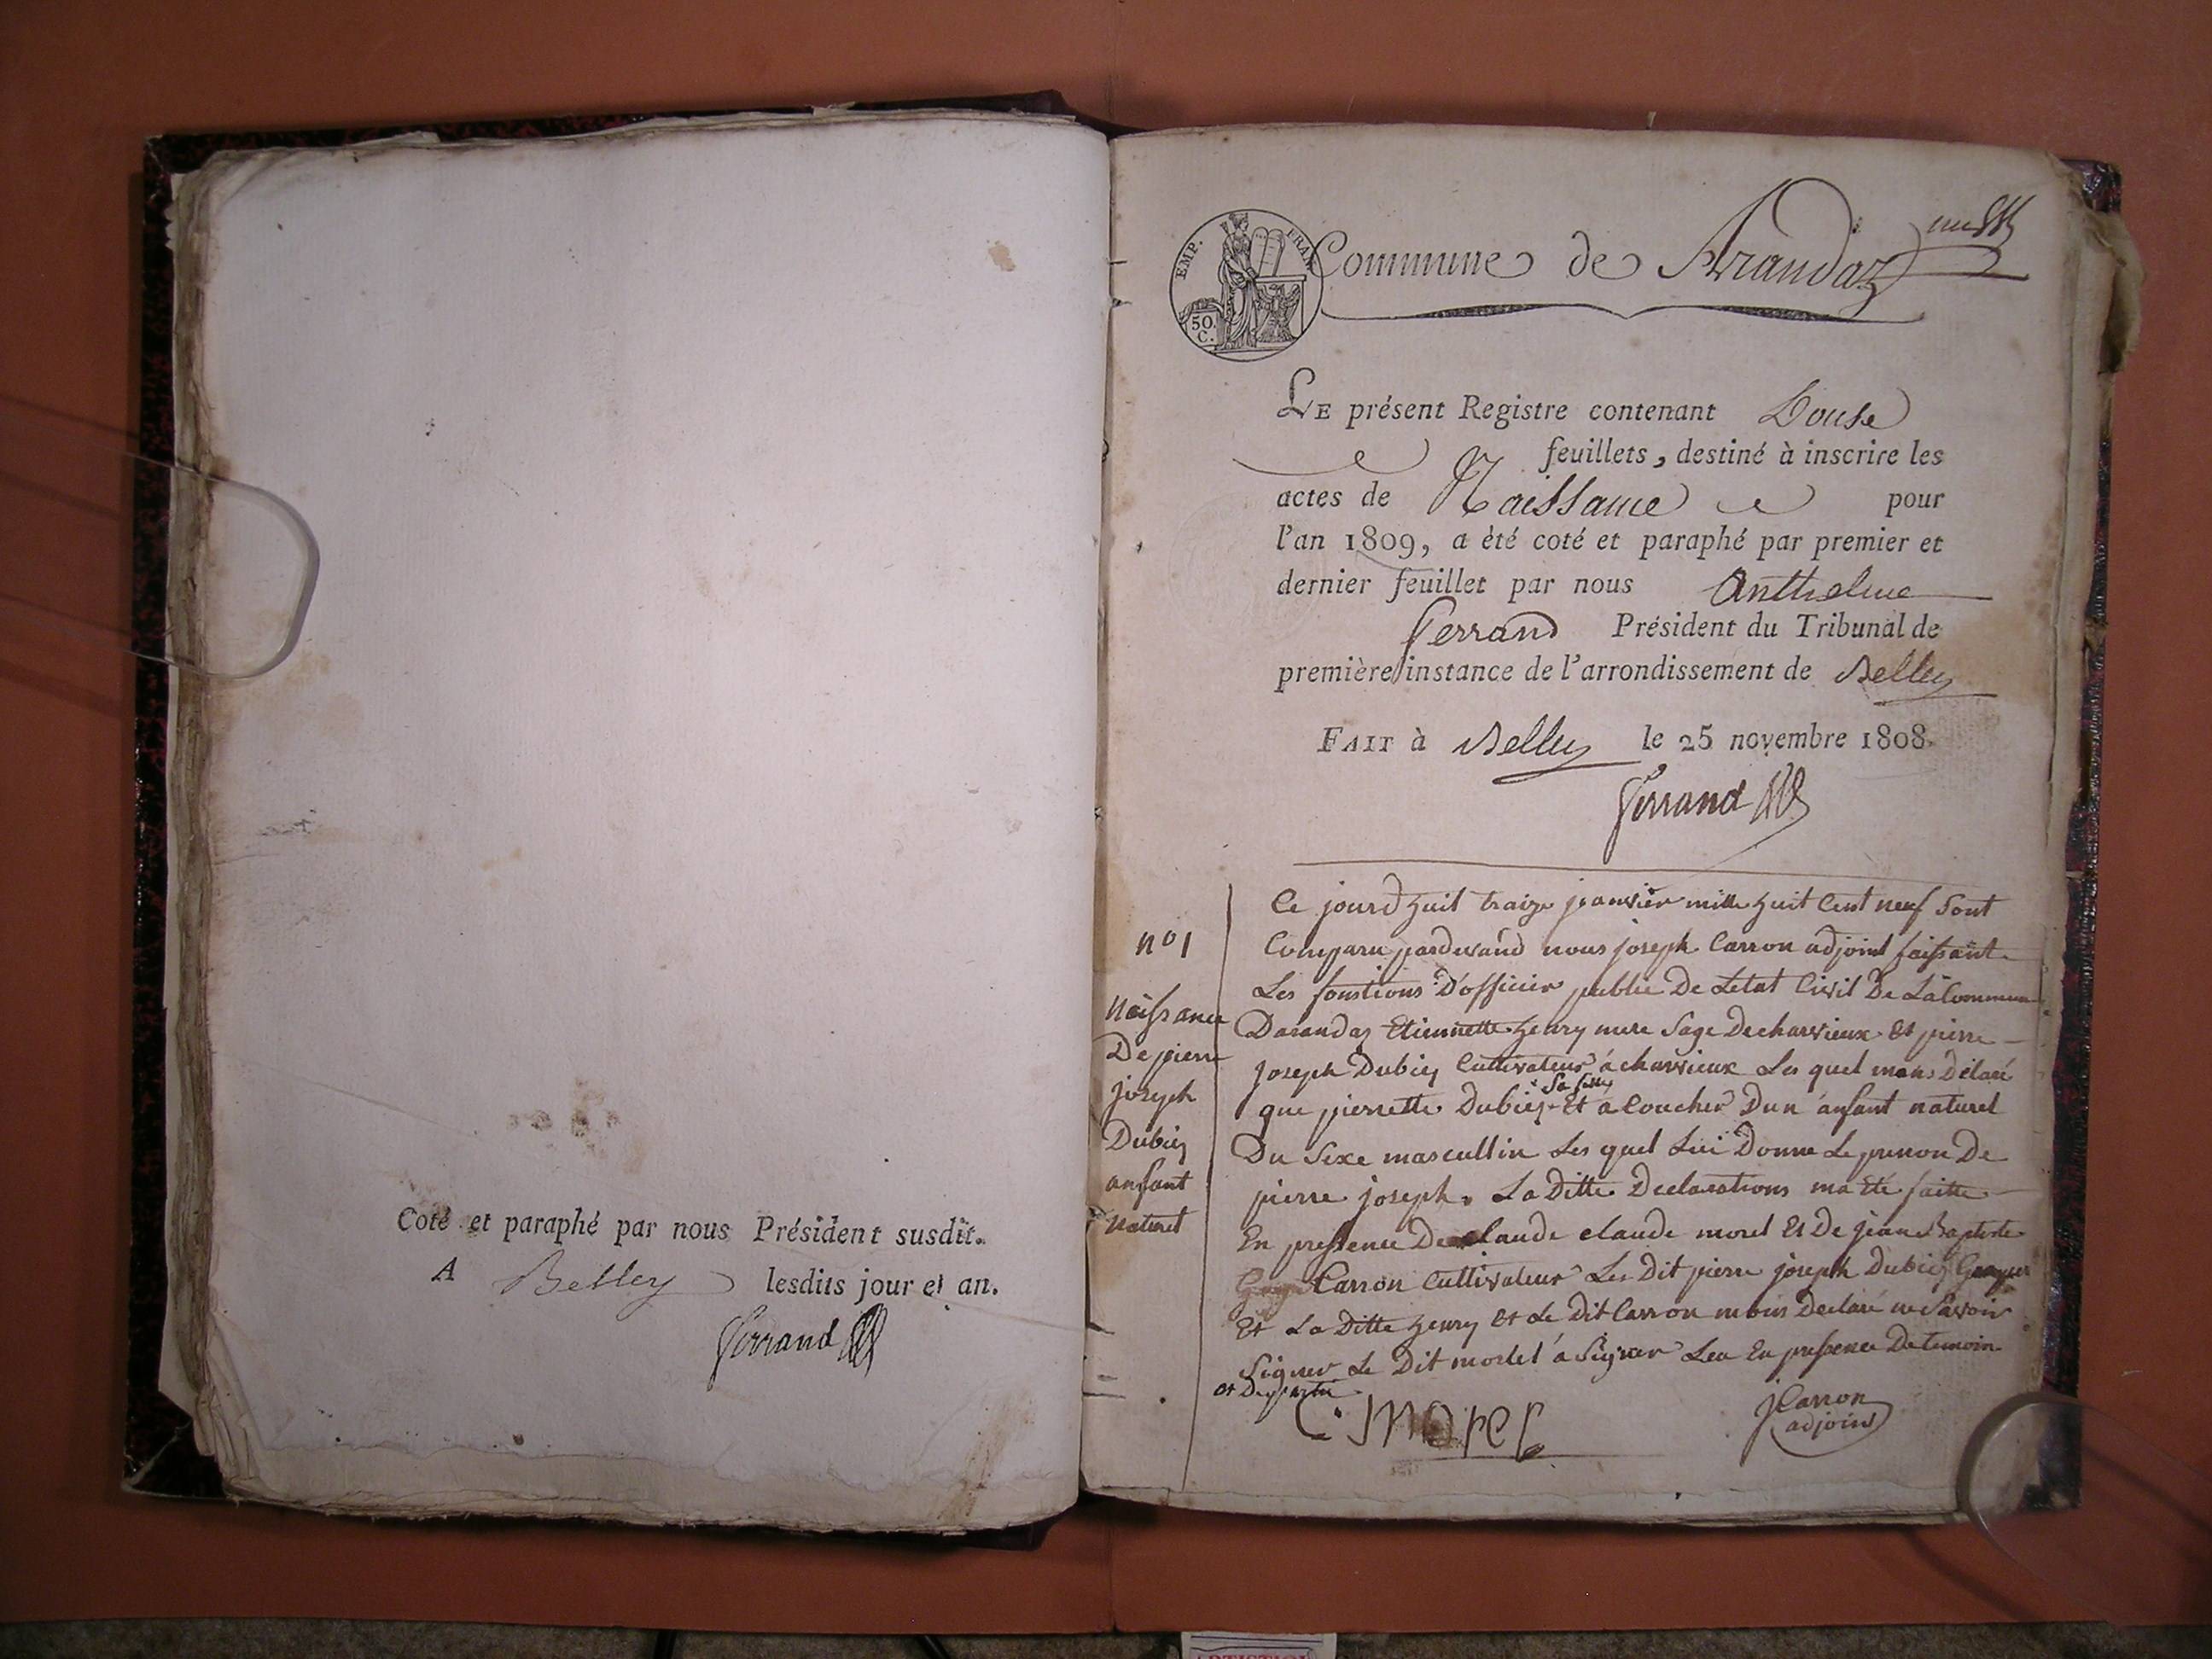 Coté et paraphé par nous Président susdit.
A Belley lesdits jour et an.
Ferrand
EMP. FRAN
50.
C.
Commune de Arandaz
LE présent Registre contenant Douse
feuillets, destiné à inscrire les
actes de Naissance pour
l'an 1809, a èté coté et paraphé par premier et
dernier feuillet par nous Anthelme
Ferrand Président du Tribunal de
première instance de l'arrondissement de Belley
FAIT à Belley le 25 novembre 1808.
Ferrand
nº 1
Naissance
De pierre
joseph
Dubiey
anfant
naturel
Ce jourd huit traize janvier mille huit Cent neuf Sont
Comparu pardevand nous joseph Carron adjoint faissant
Les fonstions D'officier public De Letat Civil De La Commune
Darandaz Etiennette henry mere Sage De charvieux Et pierre
joseph Dubiey Cultivateur á charvieux Les quel mons Délaré
que pierrette Dubiey Sa fille Et a Coucher Dun anfant naturel
Du Sexe mascullin Les quel Lui Donne Le prenon De
pierre joseph. La Ditte Declarations ma été faitte
En pressence De Claude claude morel Et De jean Baptiste
Carron Cultivateur Le Dit pierre joseph Dubiey
Et La Ditte henry Et Le Dit Carron mons Declaré ne Savoir
Signer Le Dit morlel á Signer Leu En pressence De temoin
et De partie
C. morel
J Carron
adjoint